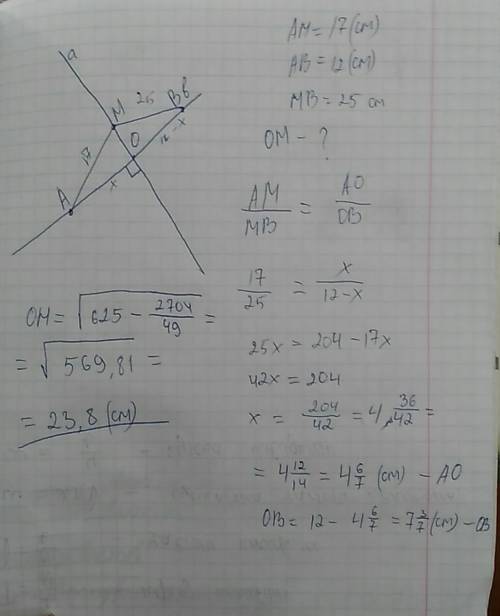 a
M
25
B в
O
12-x
17
x
A
AM = 17 (см)
AB = 12 (см)
MB = 25 см
OM - ?
AM/MB = AO/OB
17/25 = x/12-x
25x = 204 - 17x
42x = 204
x = 204/42 = 4 36/42 =
= 4 12/14 = 4 6/7 (см) - AO
OB = 12 - 4 6/7 = 7 1/7 (см) - OB
OM = √625 - 2704/49 =
= √569,81 =
= 23,8 (см)